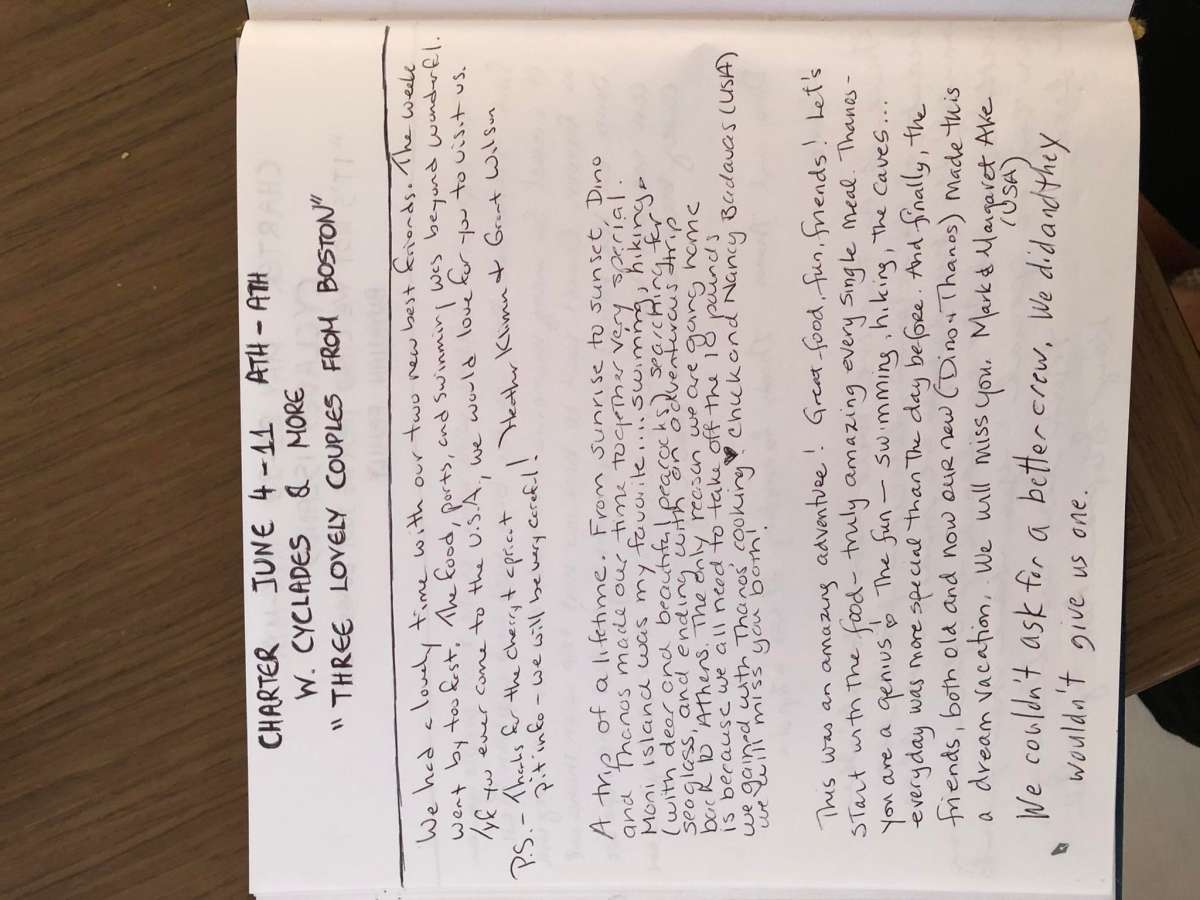 CHARTER JUNE 4-11 ATH-ATH
W. CYCLADES & MORE
"THREE LOVELY COUPLES FROM BOSTON"
We had a lovely time with our two new best friends. The week
went by too fast. The food, ports, and swimming was beyond wonderful.
If you ever come to the U.S.A, we would love for you to visit us.
P.S. - Thanks for the cherry + apricot Heather Kimm + Grant Wilson
pit info - we will be very careful!
A trip of a lifetime. From sunrise to sunset, Dino
and Thanos made our time together very special.
Moni island was my favorite.....swimming, hiking,
(with deer and beautiful peacocks) searching for
seaglass, and ending with an adventurous trip
back to Athens. The only reason we are going home
is because we all need to take off the 18 pounds
we gained with Thanos cooking! Chuck and Nancy Badavas (USA)
We will miss you both!
This was an amazing adventure! Great food, fun, friends! Let's
start with the food - truly amazing every single meal. Thanos -
you are a genius! The fun - swimming, hiking, the caves...
everyday was more special than the day before. And finally, the
friends, both old and now our new (Dino + Thanos) made this
a dream vacation. We will miss you. Mark & Margaret Ake
(USA)
We couldn't ask for a better crew, We did and they
wouldn't give us one.